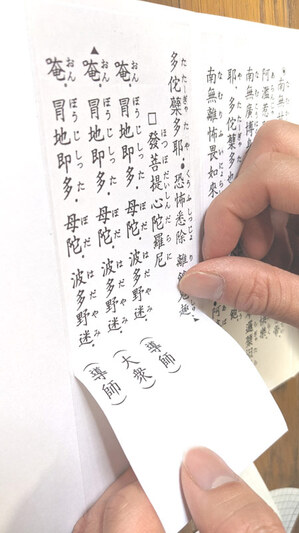 南無
南無廣博身
耶・多佗櫱多也
南無離怖畏如來
たたーぎゃたや くふしつじょ り
多佗櫱多耶・恐怖悉除 離 鬼趣
ほつぼだいしんだらに
□發菩提心陀羅尼
おん ぼうじしつた ぼだ はだやみ
唵・冒地即多・母陀・波多野迷・（導師）
おん ぼうじしつた ぼだ はだやみ
▲唵・冒地即多・母陀・波多野迷・（大衆）
おん ぼうじしつた ぼだ はだやみ
唵・冒地即多・母陀・波多野迷・（導師）